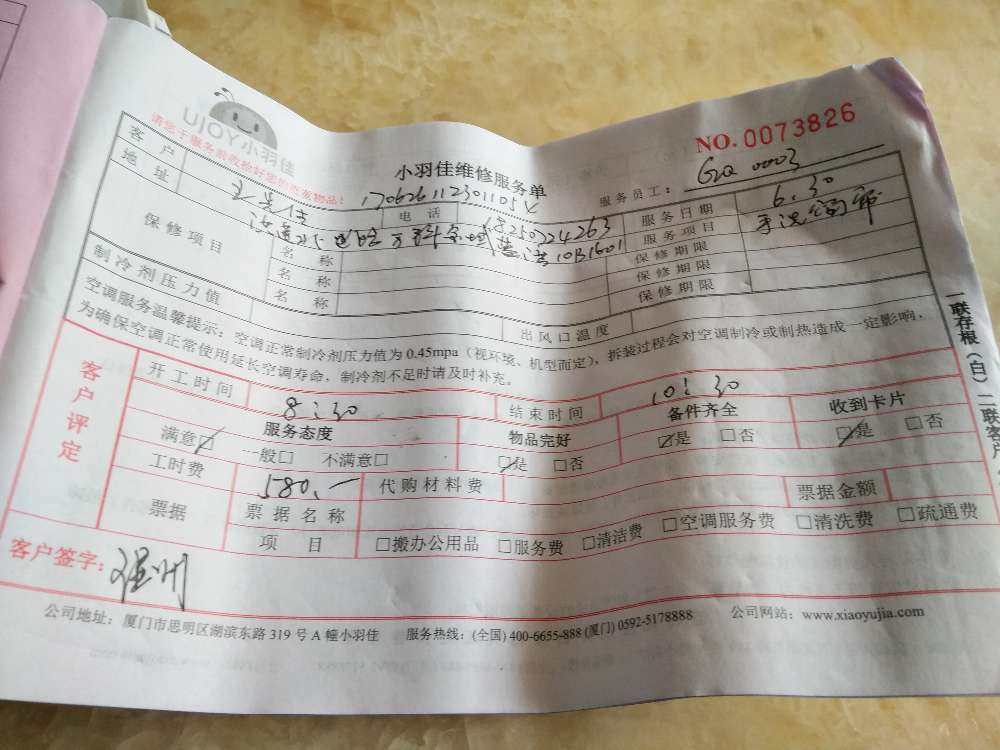 UJOY 小羽佳
NO.0073826
请您于服务前收检好您的贵重物品！
小羽佳维修服务单
服务员工：
客户
电话 18250224263
服务日期 6.30
地址
服务项目
保修项目
名称
保修期限
名称
保修期限
名称
保修期限
制冷剂压力值
出风口温度
空调服务温馨提示：空调正常制冷剂压力值为 0.45mpa（视环境、机型而定），拆装过程会对空调制冷或制热造成一定影响，
为确保空调正常使用延长空调寿命，制冷剂不足时请及时补充。
客户评定
开工时间 8:30 结束时间 10:30
服务态度 物品完好 备件齐全 收到卡片
满意□ 一般□ 不满意□ □是 □否 □是 □否 □是 □否
工时费 580.— 代购材料费
票据 票据名称 票据金额
项目 □搬办公用品 □服务费 □清洁费 □空调服务费 □清洗费 □疏通费
客户签字：
公司地址：厦门市思明区湖滨东路 319 号 A 幢小羽佳 服务热线：(全国) 400-6655-888 (厦门) 0592-5178888 公司网站：www.xiaoyujia.com
一联存根（白）二联客户